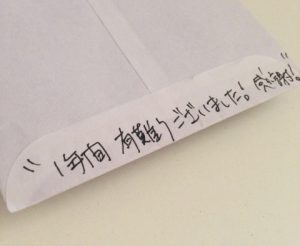 "1年間 有難うございました! 感謝!"